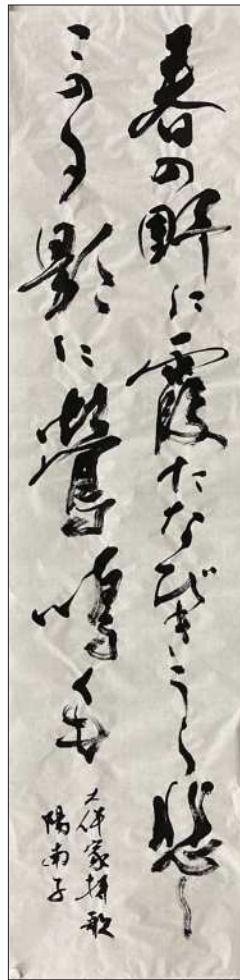 春の野に霞たなびきうら悲し
この夕影に鶯鳴くも
大伴家持歌
陽南子